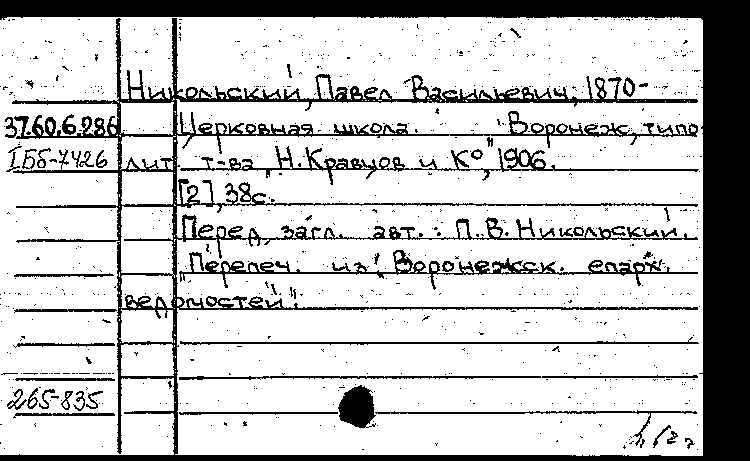 Никольский, Павел Васильевич, 1870-
37.60.6.286 Церковная школа. Воронеж, типо-
1Бб-7426 лит. т-ва „Н. Кравцов и К°", 1906.
[2], 38с.
Перед загл. авт.: П.В. Никольский.
„Перепеч. из „Воронежск. епарх.
ведомостей".
265-835